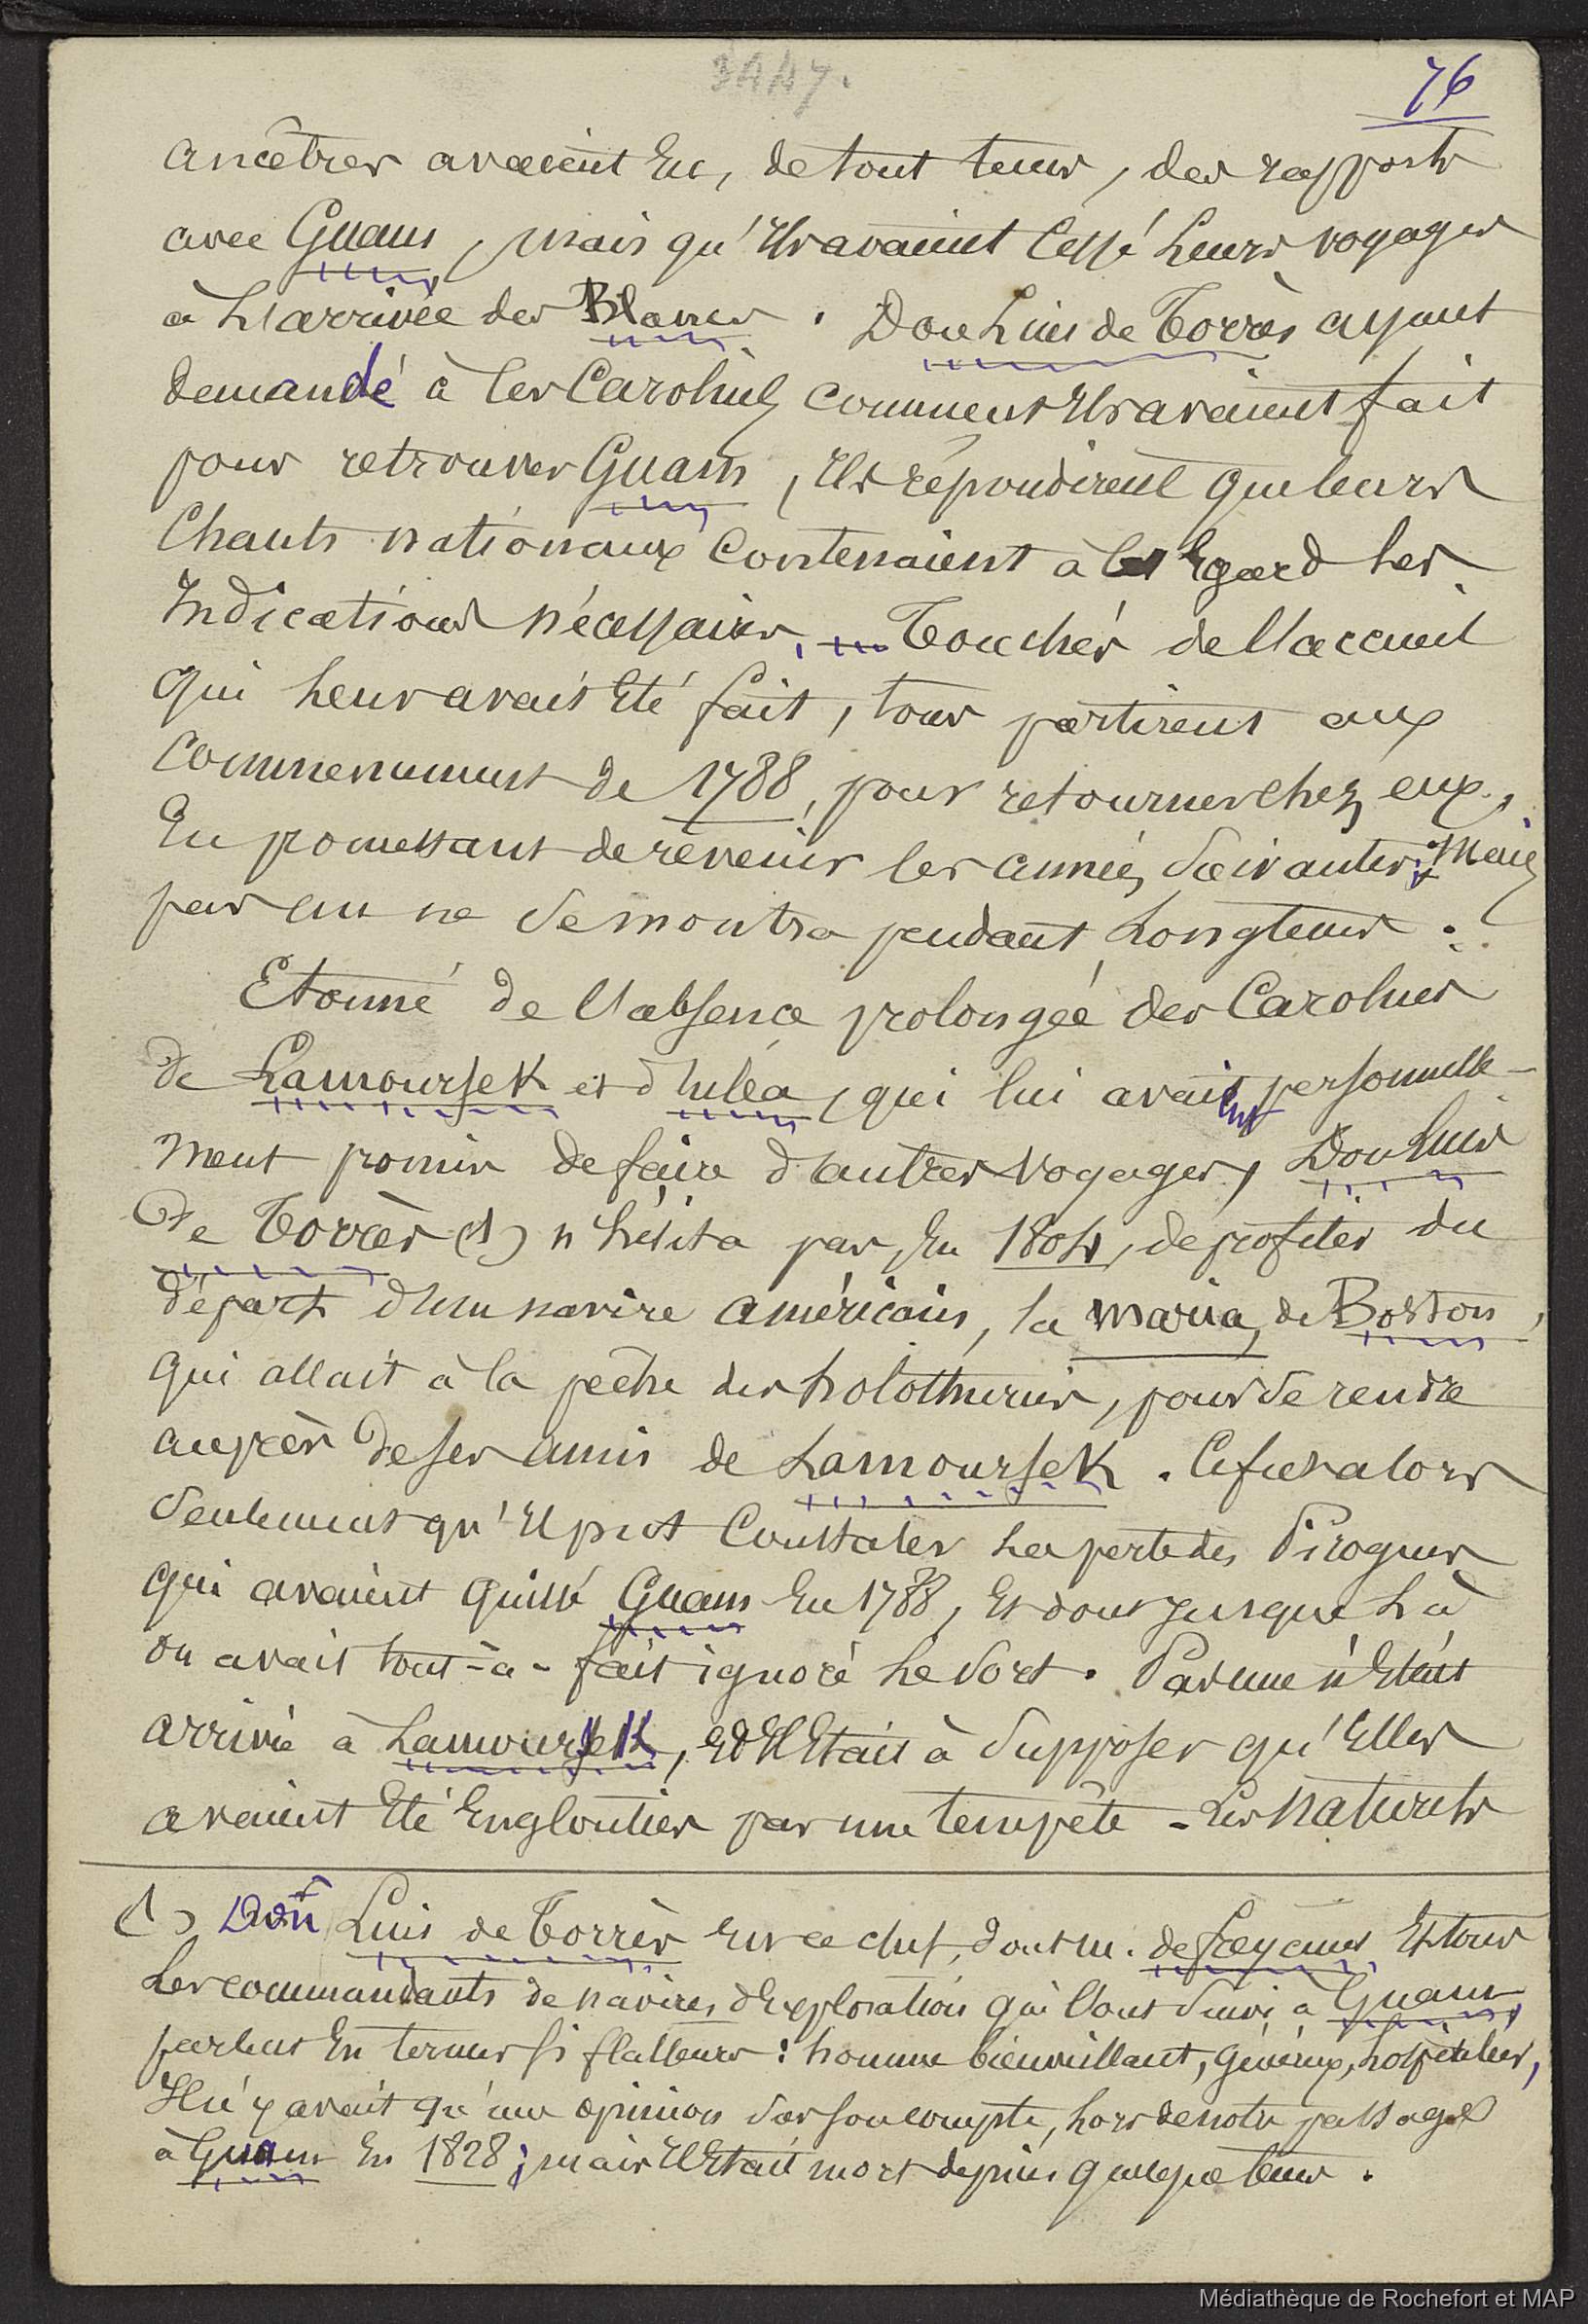 3447.
76
ancêtres avaient Eu, de tout tems, des rapports
avec Guam, mais qu'Ils avaient Cessé Leurs voyages
à L'arrivée des Blancs. Don Luis de Torrès ayant
demandé à Ces Carolins comment Ils avaient fait
pour retrouver Guam, Ils répondirent que leurs
Chants nationaux Contenaient à Cet Egard Les
Indications nécessaires. — Touchés de l'accueil
qui Leur avait Eté fait, tous partirent aux
Commencement de 1788, pour retourner chez eux,
En promettant de revenir les années Suivantes; Mais
pas un ne Se montra pendant Longtems.
Etonné de l'absence prolongée des Carolins
de Lamoursek et d'Uléa, qui lui avaient personnelle-
ment promis de faire d'autres voyages, Don Luis
de Torrès (1) n'hésita pas, En 1804, de profiter du
départ d'un navire américain, la Maria, de Boston,
qui allait à la pêche des holothuries, pour Se rendre
auprès de Ses amis de Lamoursek. Ce fut alors
Seulement qu'Il put Constater La perte des Pirogues
qui avaient quitté Guam En 1788, Et dont jusque Là
on avait tout-à-fait ignoré Le Sort. Pas une n'Etait
arrivée à Lamoursek, Et Il Etait à Supposer qu'Elles
avaient Eté Englouties par une tempête - Les Naturels
(1) Don Luis de Torrès Est ce chef, dont M. de Freycinet Et tous
Les commandants de navires d'Exploration qui l'ont Suivi à Guam,
parlent En termes Si flatteurs: homme bienveillant, généreux, hospitalier,
Il n'y avait qu'une opinion Sur Son compte, lors de notre passage
à Guam En 1828; mais Il Etait mort depuis quelque tems.
Médiathèque de Rochefort et MAP